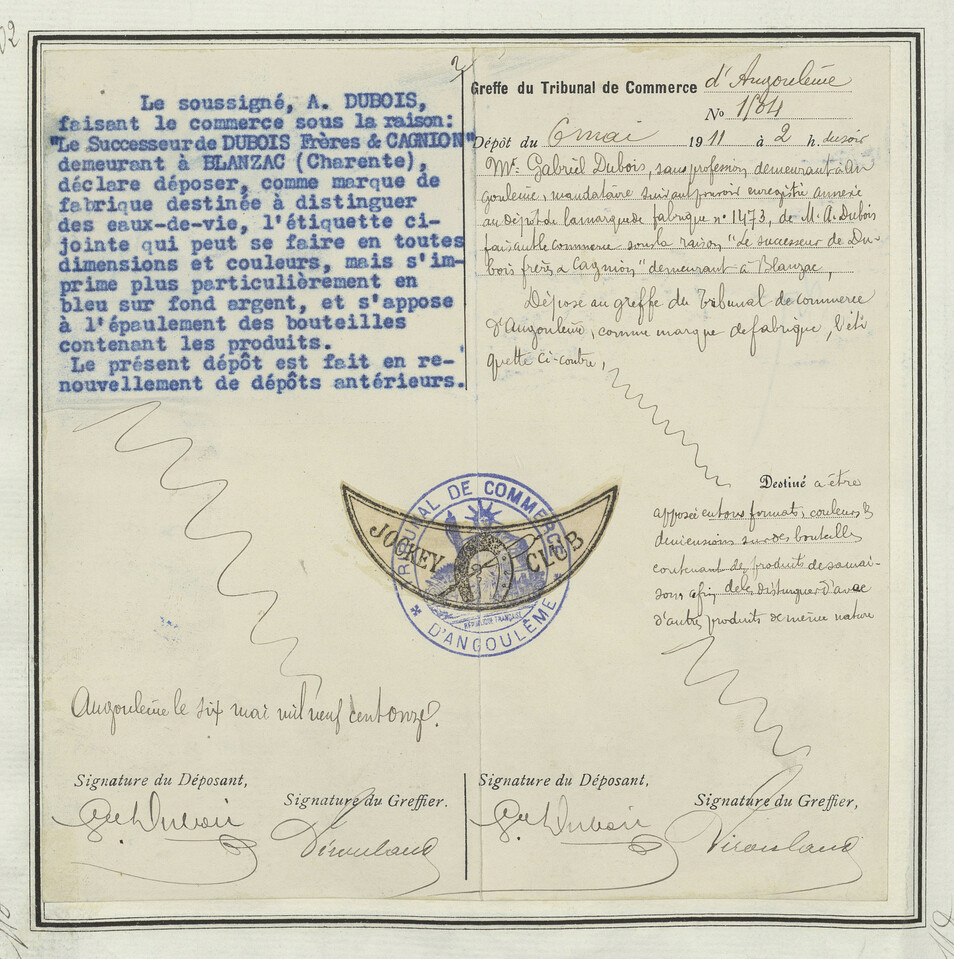 Le soussigné, A. DUBOIS,
faisant le commerce sous la raison:
"Le Successeur de DUBOIS Frères & CAGNION"
demeurant à BLANZAC (Charente),
déclare déposer, comme marque de
fabrique destinée à distinguer
des eaux-de-vie, l'étiquette ci-
jointe qui peut se faire en toutes
dimensions et couleurs, mais s'im-
prime plus particulièrement en
bleu sur fond argent, et s'appose
à l'épaulement des bouteilles
contenant les produits.
Le présent dépôt est fait en re-
nouvellement de dépôts antérieurs.
Angoulême le six mai mil neuf cent onze.
Signature du Déposant,
Signature du Greffier.
Greffe du Tribunal de Commerce d'Angoulême
No
Dépôt du 6 mai 1911 à 2 h. du soir
Mr. Gabriel Dubois, sans profession demeurant à An
goulême, mandataire suivant pouvoir enregistré annexé
au dépôt de la marque de fabrique n° 1473, de M. A. Dubois
faisant le commerce sous la raison "Le successeur de Du-
bois frères & Cagnion" demeurant à Blanzac,
Déposé au greffe du Tribunal de commerce
d'Angoulême, comme marque de fabrique, l'éti
quette ci-contre,
Destiné a être
apposée en tous formats, couleurs &
dimensions sur des bouteilles
contenant des produits de sa mai-
son afin de les distinguer d'avec
d'autres produits de même nature
JOCKEY CLUB
TRIBUNAL DE COMMERCE
RÉPUBLIQUE FRANÇAISE
D'ANGOULÊME
Signature du Déposant,
Signature du Greffier,